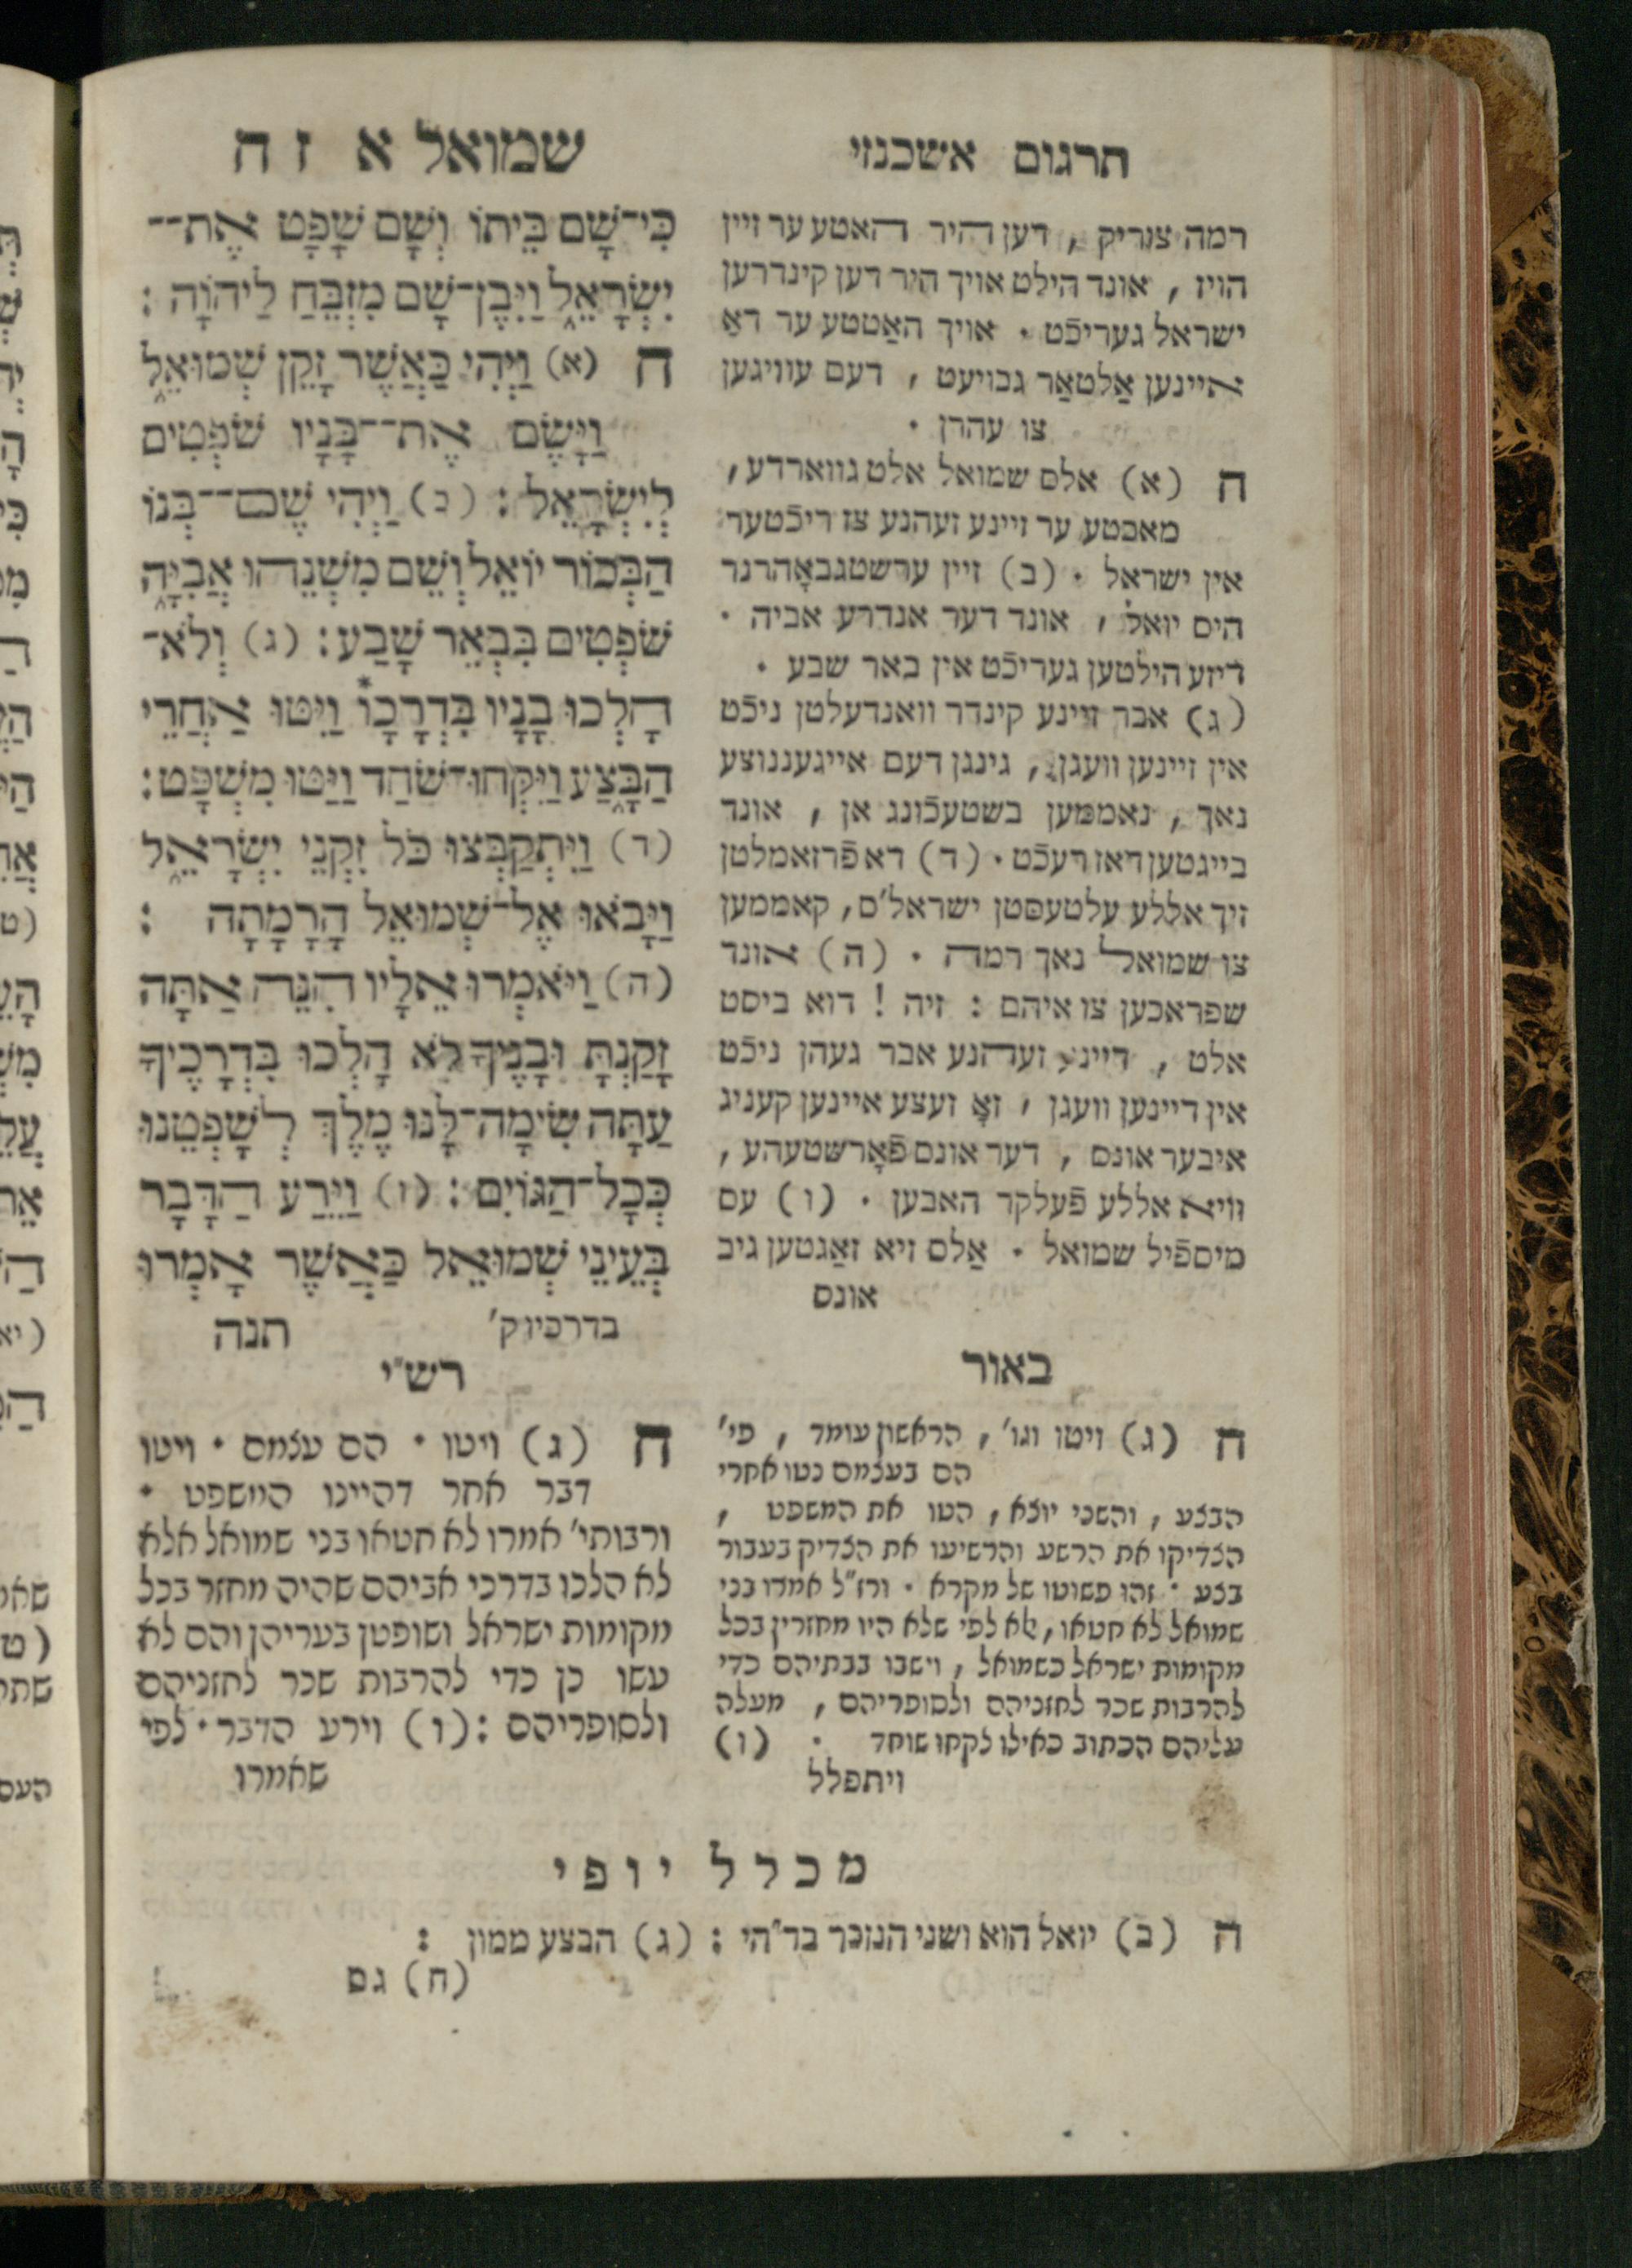 תרגום אשכנזי
שמואל א ז ח
רמה צוריק , דען היר האטטע ער זיין
הויז , אונד הילט אויך היר דען קינדרען
ישראל געריכֿט . אויך האַטטע ער דאַ
איינען אַלטאַר גבויעט , דעם עוויגען
צו עהרן .
ח (א) אלס שמואל אלט גווארדע,
מאכטע ער זיינע זעהנע צו ריכֿטער
אין ישראל . (ב) זיין ערשטגבאָהרנר
היס יואל , אונד דער אנדרע אביה .
דיזע הילטען געריכֿט אין באר שבע .
(ג) אבר זיינע קינדר וואנדעלטן ניכֿט
אין זיינען וועגן , גינגן דעם אייגעננוצע
נאך , נאממען בשטעכֿונג אן , אונד
בייגטען דאז רעכֿט . (ד) דא פֿרזאמלטן
זיך אללע עלטעסטן ישראל'ס, קאממען
צו שמואל נאך רמה . (ה) אונד
שפראכען צו איהם : זיה ! דוא ביסט
אלט , דיינע זעהנע אבר געהן ניכֿט
אין דיינען וועגן , זאָ זעצע איינען קעניג
איבער אונס , דער אונס פֿאָרשטעהע ,
וויא אללע פֿעלקר האבען . (ו) עס
מיספֿיל שמואל . אַלס זיא זאַגטען גיב
אונס
כִּי־שָׁם בֵּיתוֹ וְשָׁם שָׁפָט אֶת־
יִשְׂרָאֵל וַיִּבֶן־שָׁם מִזְבֵּחַ לַיהוָֹה :
ח (א) וַיְהִי כַּאֲשֶׁר זָקֵן שְׁמוּאֵל
וַיָּשֶׂם אֶת־בָּנָיו שֹׁפְטִים
לְיִשְׂרָאֵל : (ב) וַיְהִי שֶׁם־בְּנוֹ
הַבְּכוֹר יוֹאֵל וְשֵׁם מִשְׁנֵהוּ אֲבִיָּה
שֹׁפְטִים בִּבְאֵר שָׁבַע : (ג) וְלֹא־
הָלְכוּ בָנָיו בִּדְרָכָו* וַיִּטּוּ אַחֲרֵי
הַבָּצַע וַיִּקְחוּ־שֹׁחַד וַיַּטּוּ מִשְׁפָּט :
(ד) וַיִּתְקַבְּצוּ כֹּל זִקְנֵי יִשְׂרָאֵל
וַיָּבֹאוּ אֶל־שְׁמוּאֵל הָרָמָתָה :
(ה) וַיֹּאמְרוּ אֵלָיו הִנֵּה אַתָּה
זָקַנְתָּ וּבָנֶיךָ לֹא הָלְכוּ בִּדְרָכֶיךָ
עַתָּה שִׂימָה־לָּנוּ מֶלֶךְ לְשָׁפְטֵנוּ
כְּכָל־הַגּוֹיִם : (ו) וַיֵּרַע הַדָּבָר
בְּעֵינֵי שְׁמוּאֵל כַּאֲשֶׁר אָמְרוּ
בדרכיו ק' תנה
באור
ח (ג) ויטו וגו' , הראשון עומד , פי'
הם בעצמם נטו אחרי
הבצע , והשני יוצא , הטו את המשפט ,
הצדיקו את הרשע והרשיעו את הצדיק בעבור
בצע . זהו פשוטו של מקרא . ורז"ל אמרו בני
שמואל לא חטאו , אלא לפי שלא היו מחזרין בכל
מקומות ישראל כשמואל , וישבו בבתיהם כדי
להרבות שכר לחזניהם ולסופריהם , מעלה
עליהם הכתוב כאילו לקחו שוחד . (ו)
ויתפלל
רש"י
ח (ג) ויטו . הם עצמם . ויטו
דבר אחר דהיינו המשפט .
ורבותי' אמרו לא חטאו בני שמואל אלא
לא הלכו בדרכי אביהם שהיה מחזר בכל
מקומות ישראל ושופטן בעריהן והם לא
עשו כן כדי להרבות שכר לחזניהם
ולסופריהם : (ו) וירע הדבר . לפי
שאמרו
מכלל יופי
ח (ב) יואל הוא ושני הנזכר בד"הי : (ג) הבצע ממון :
(ח) גם